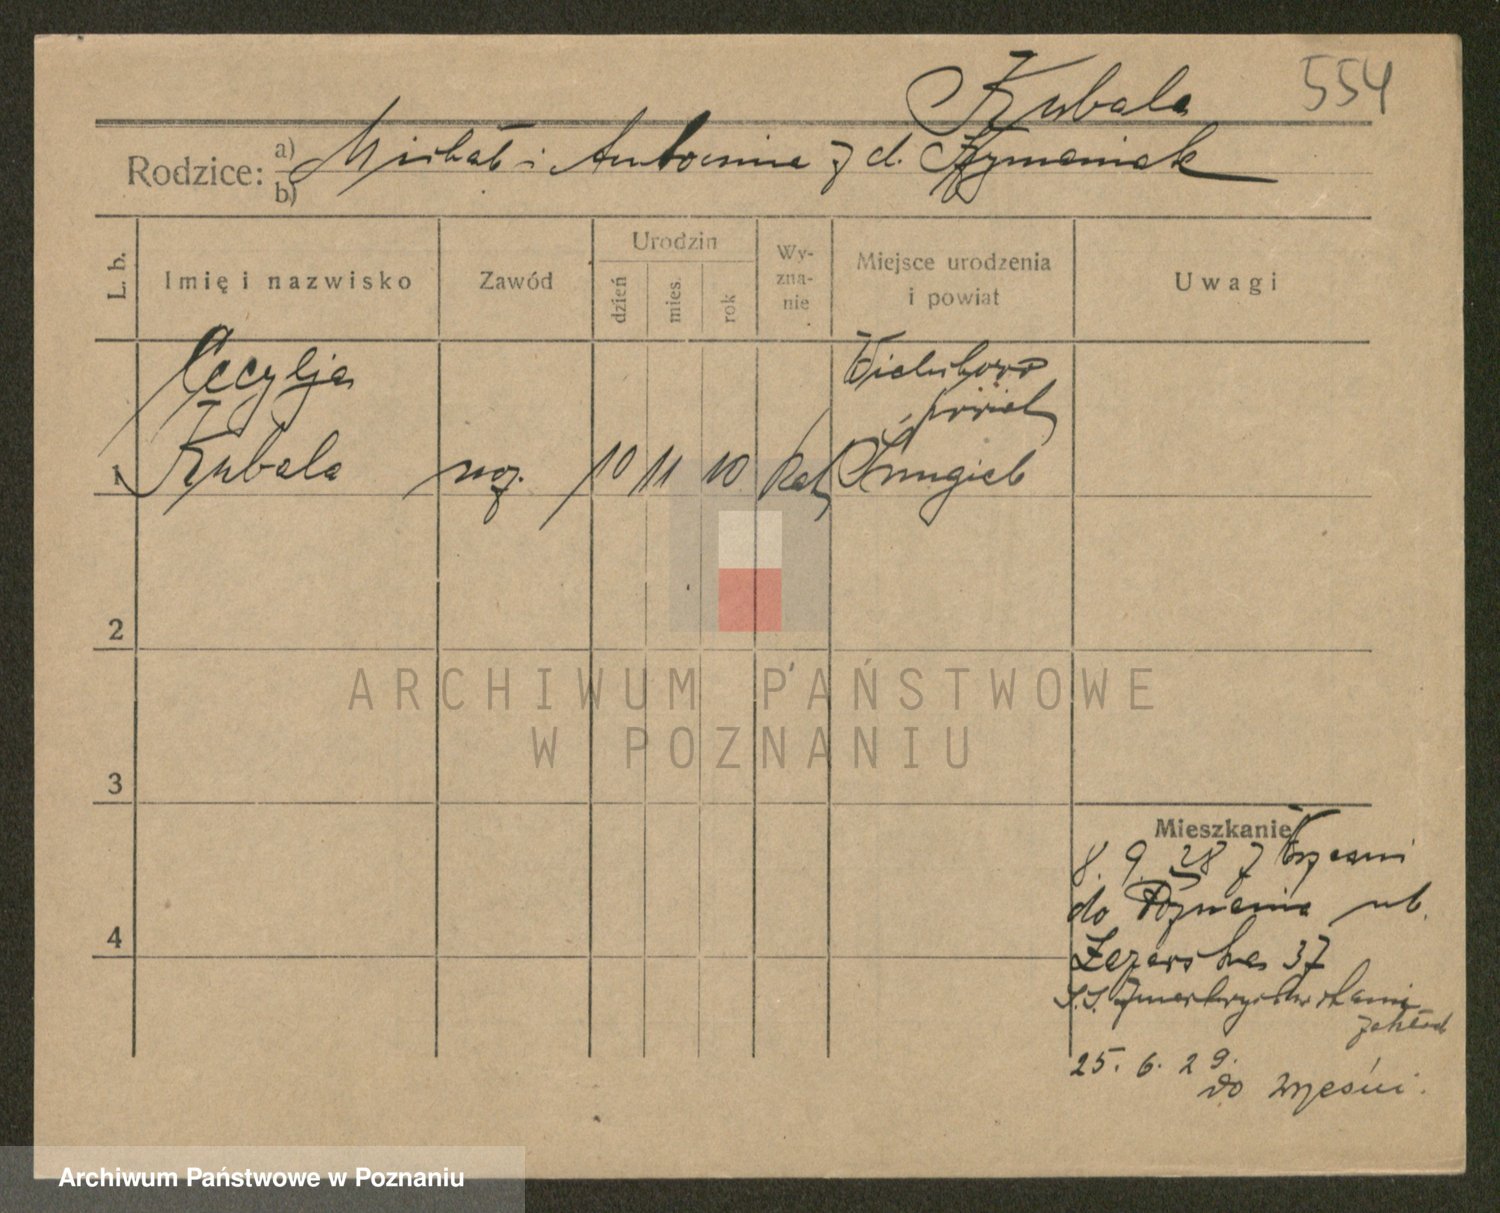 Kubala 554
Rodzice: a) Michał i Antonina z d. Szymaniak
b)
L. b. Imię i nazwisko Zawód Urodzin dzień mies. rok Wyznanie Miejsce urodzenia i powiat Uwagi
Cecylja Wielichowo
powiat
1 Kubala 10 11 10 kat. Śmigiel
2
3
4
Mieszkanie
8. 9. 28 z Wrześni
do Poznania ul.
37
S.S. Zmartwychwstania
zakład
25. 6. 29.
do Wrześni.
ARCHIWUM PAŃSTWOWE
W POZNANIU
Archiwum Państwowe w Poznaniu